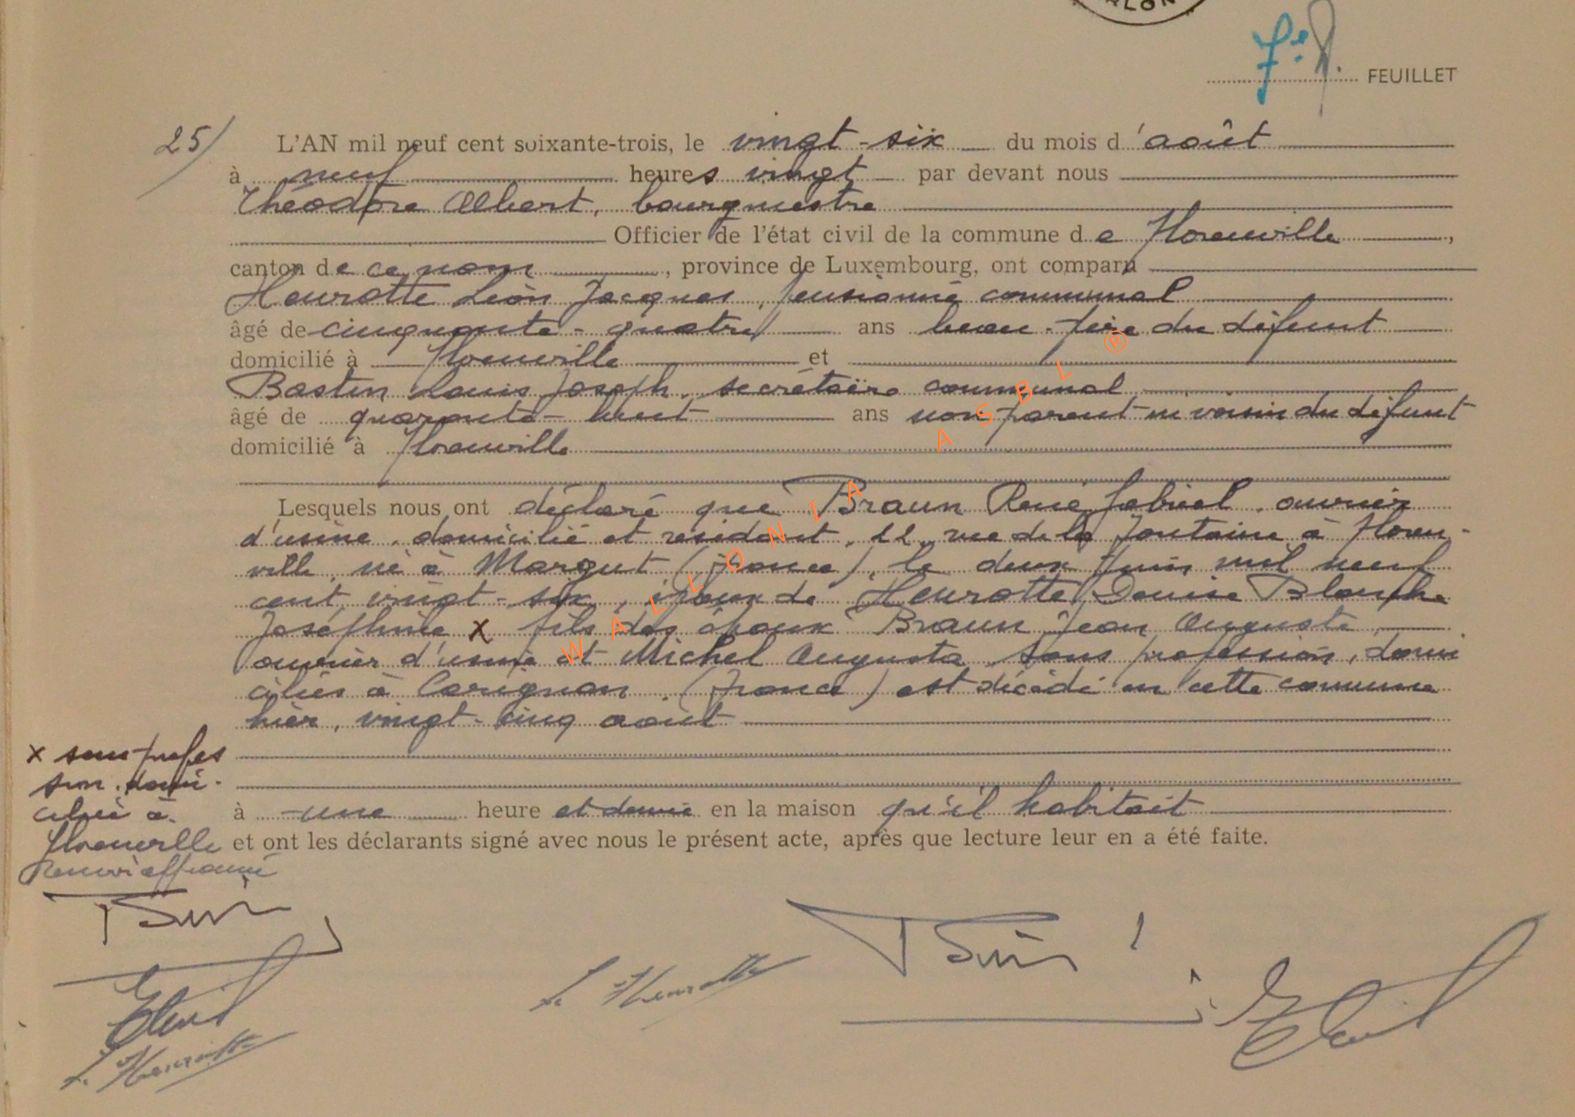 ALON
7e
FEUILLET
25/ L'AN mil neuf cent soixante-trois, le vingt-six du mois d'août
à neuf heures vingt par devant nous
Théodore Albert, bourgmestre
Officier de l'état civil de la commune de Florenville,
canton de ce nom, province de Luxembourg, ont comparu
Heurotte Léon Jacques, pensionné communal
âgé de cinquante-quatre ans beau-père du défunt
domicilié à Florenville et
Bastin Louis Joseph, secrétaire communal
âgé de quarante-huit ans non parent ni voisin du défunt
domicilié à Florenville
Lesquels nous ont déclaré que Braun René Gabriel, ouvrier
d'usine, domicilié et résidant, 22, rue de la Fontaine à Floren-
ville, né à Margut (France), le deux Juin mil neuf
cent vingt-six, époux de Heurotte Denise Blanche
Joséphine x fils des époux Braun Jean Auguste,
ouvrier d'usine et Michel Augusta, sans profession, domi
ciliés à Carignan, (France) est décédé en cette commune
hier, vingt-cinq août
x sans profes
sion, domi-
ciliée à
Florenville
Renvoi approuvé
à une heure et demie en la maison qu'il habitait
et ont les déclarants signé avec nous le présent acte, après que lecture leur en a été faite.
L. Heurotte
L. Heurotte
WALLONIA ASBL ©